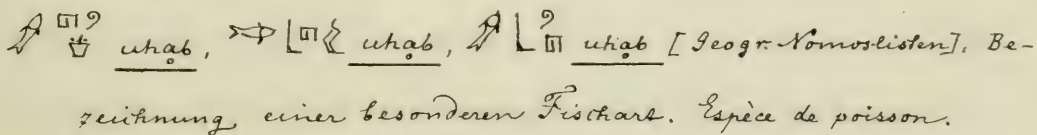 uhạb, uhạb, uhạb [Geogr. Nomoslisten], Be-
zeichnung einer besonderen Fischart. Espèce de poisson.